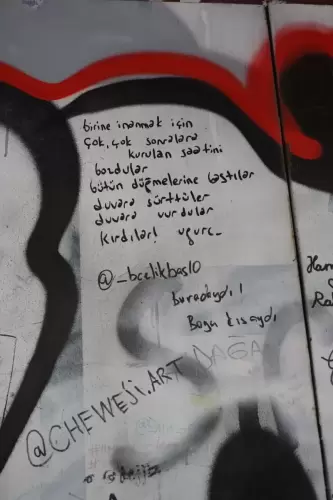 birine inanmak için
çok, çok sonralara
kurulan saatini
bozdular
bütün düğmelerine bastılar
duvara sürttüler
duvara vurdular
kırdılar!
@_bcelikbas10
buradaydı!
Boyu kısaydı
DAĞA
@CHEWESJI.ART